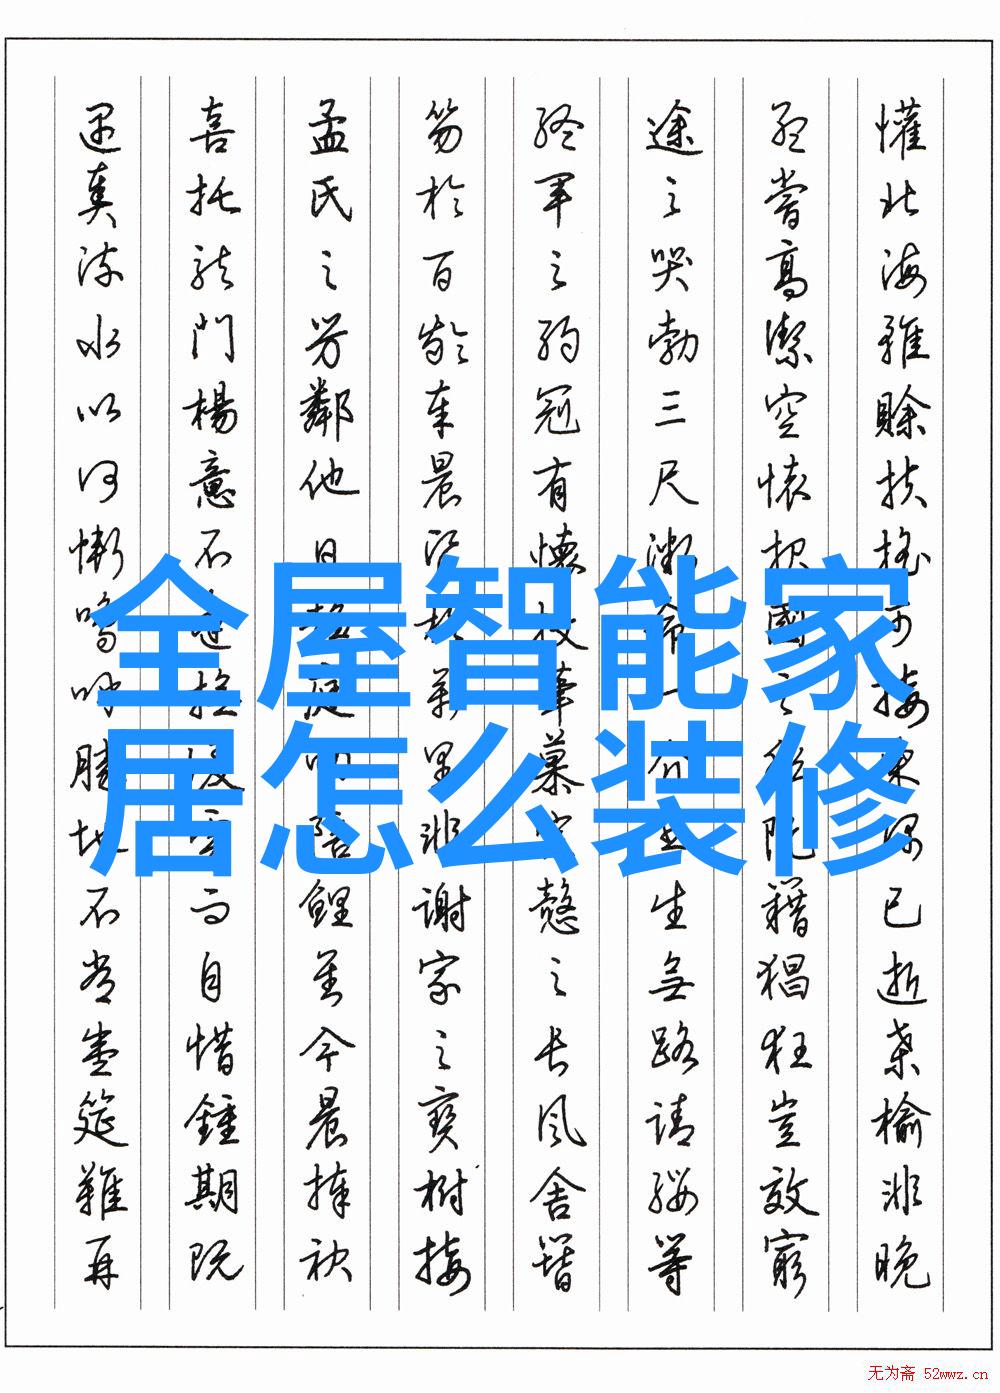 懽北海雖賒扶搖可接東隅已逝桑榆非晚
孟嘗高潔空懷報國之阮籍猖狂豈效窮
途之哭勃三尺微命一介書生無路請纓等
終軍之弱冠有懷投筆慕宗愨之長風舍簪
笏於百齡奉晨昏於萬里非謝家之寶樹接
孟氏之芳鄰他日趨庭叨陪鯉對今晨捧袂
喜托龍門楊意不逢撫凌雲而自惜鍾期既
遇奏流水以何慚嗚呼勝地不常盛筵難再
全屋智能家
居怎么装修
无为斋 52wwz.cn